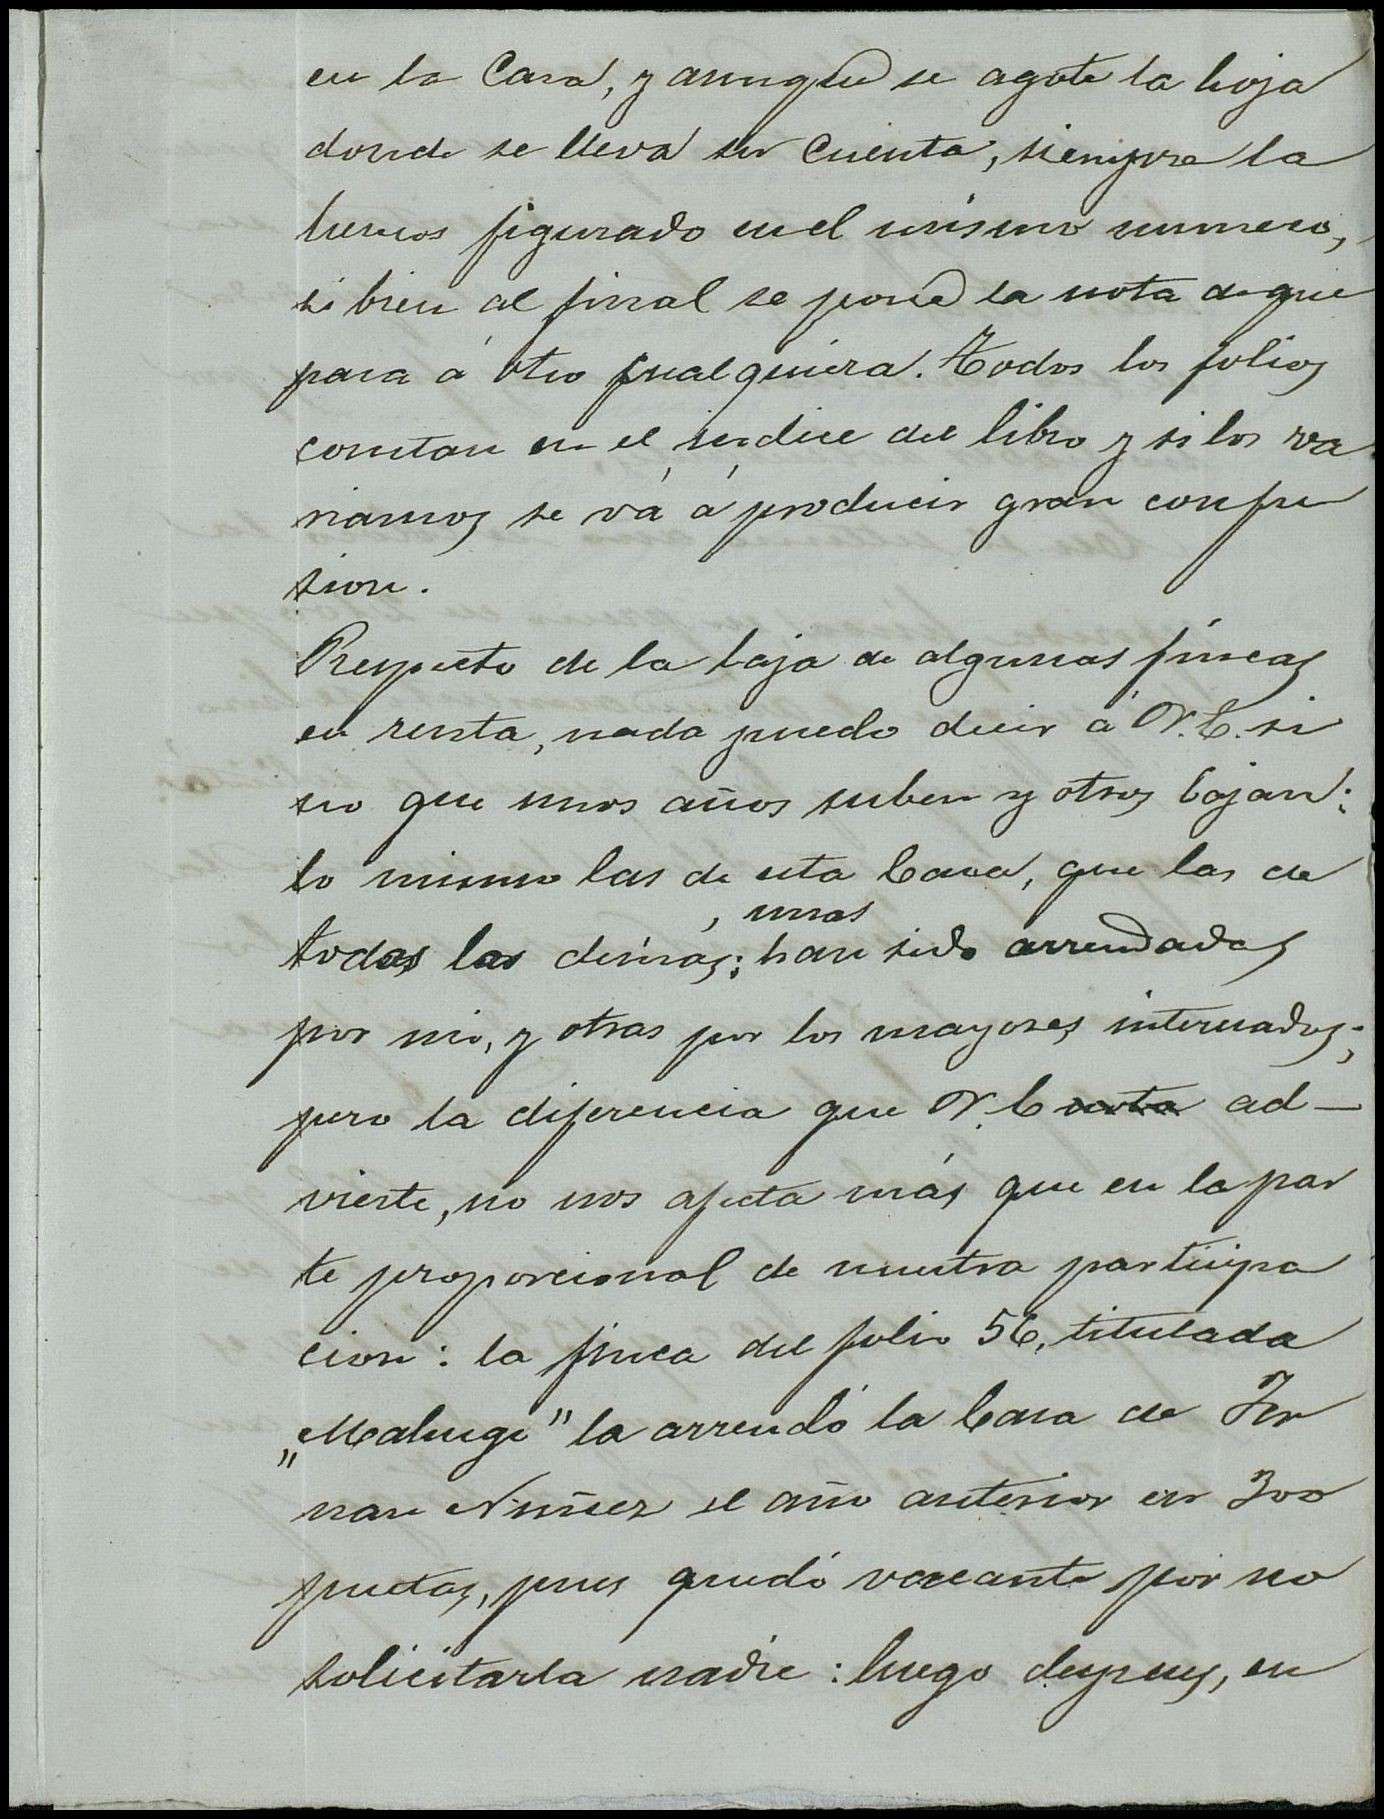 en la Casa, y aunque se agote la hoja
donde se lleva su cuenta, siempre la
hemos figurado en el mismo numero,
si bien al final se pone la nota de que
pasa á otro cualquiera. Todos los folios
constan en el indice del libro y si los va
riamos se vá á producir gran confu
sion.
Respecto de la baja de algunas fincas
en renta, nada puedo decir á V.E. si
no que unos años suben y otros bajan:
lo mismo las de esta Casa, que las de
todas las demás; , unas han sido arrendadas
por mi, y otras por los mayores interesados;
pero la diferencia que V.E. ad-
vierte, no nos afecta más que en la par
te proporcional de nuestra participa
cion: la finca del folio 56, titulada
"Malugi" la arrendó la Casa de Fer
nan Nuñez el año anterior en 300
pesetas, pues quedó vacante por no
solicitarla nadie: luego despues, en